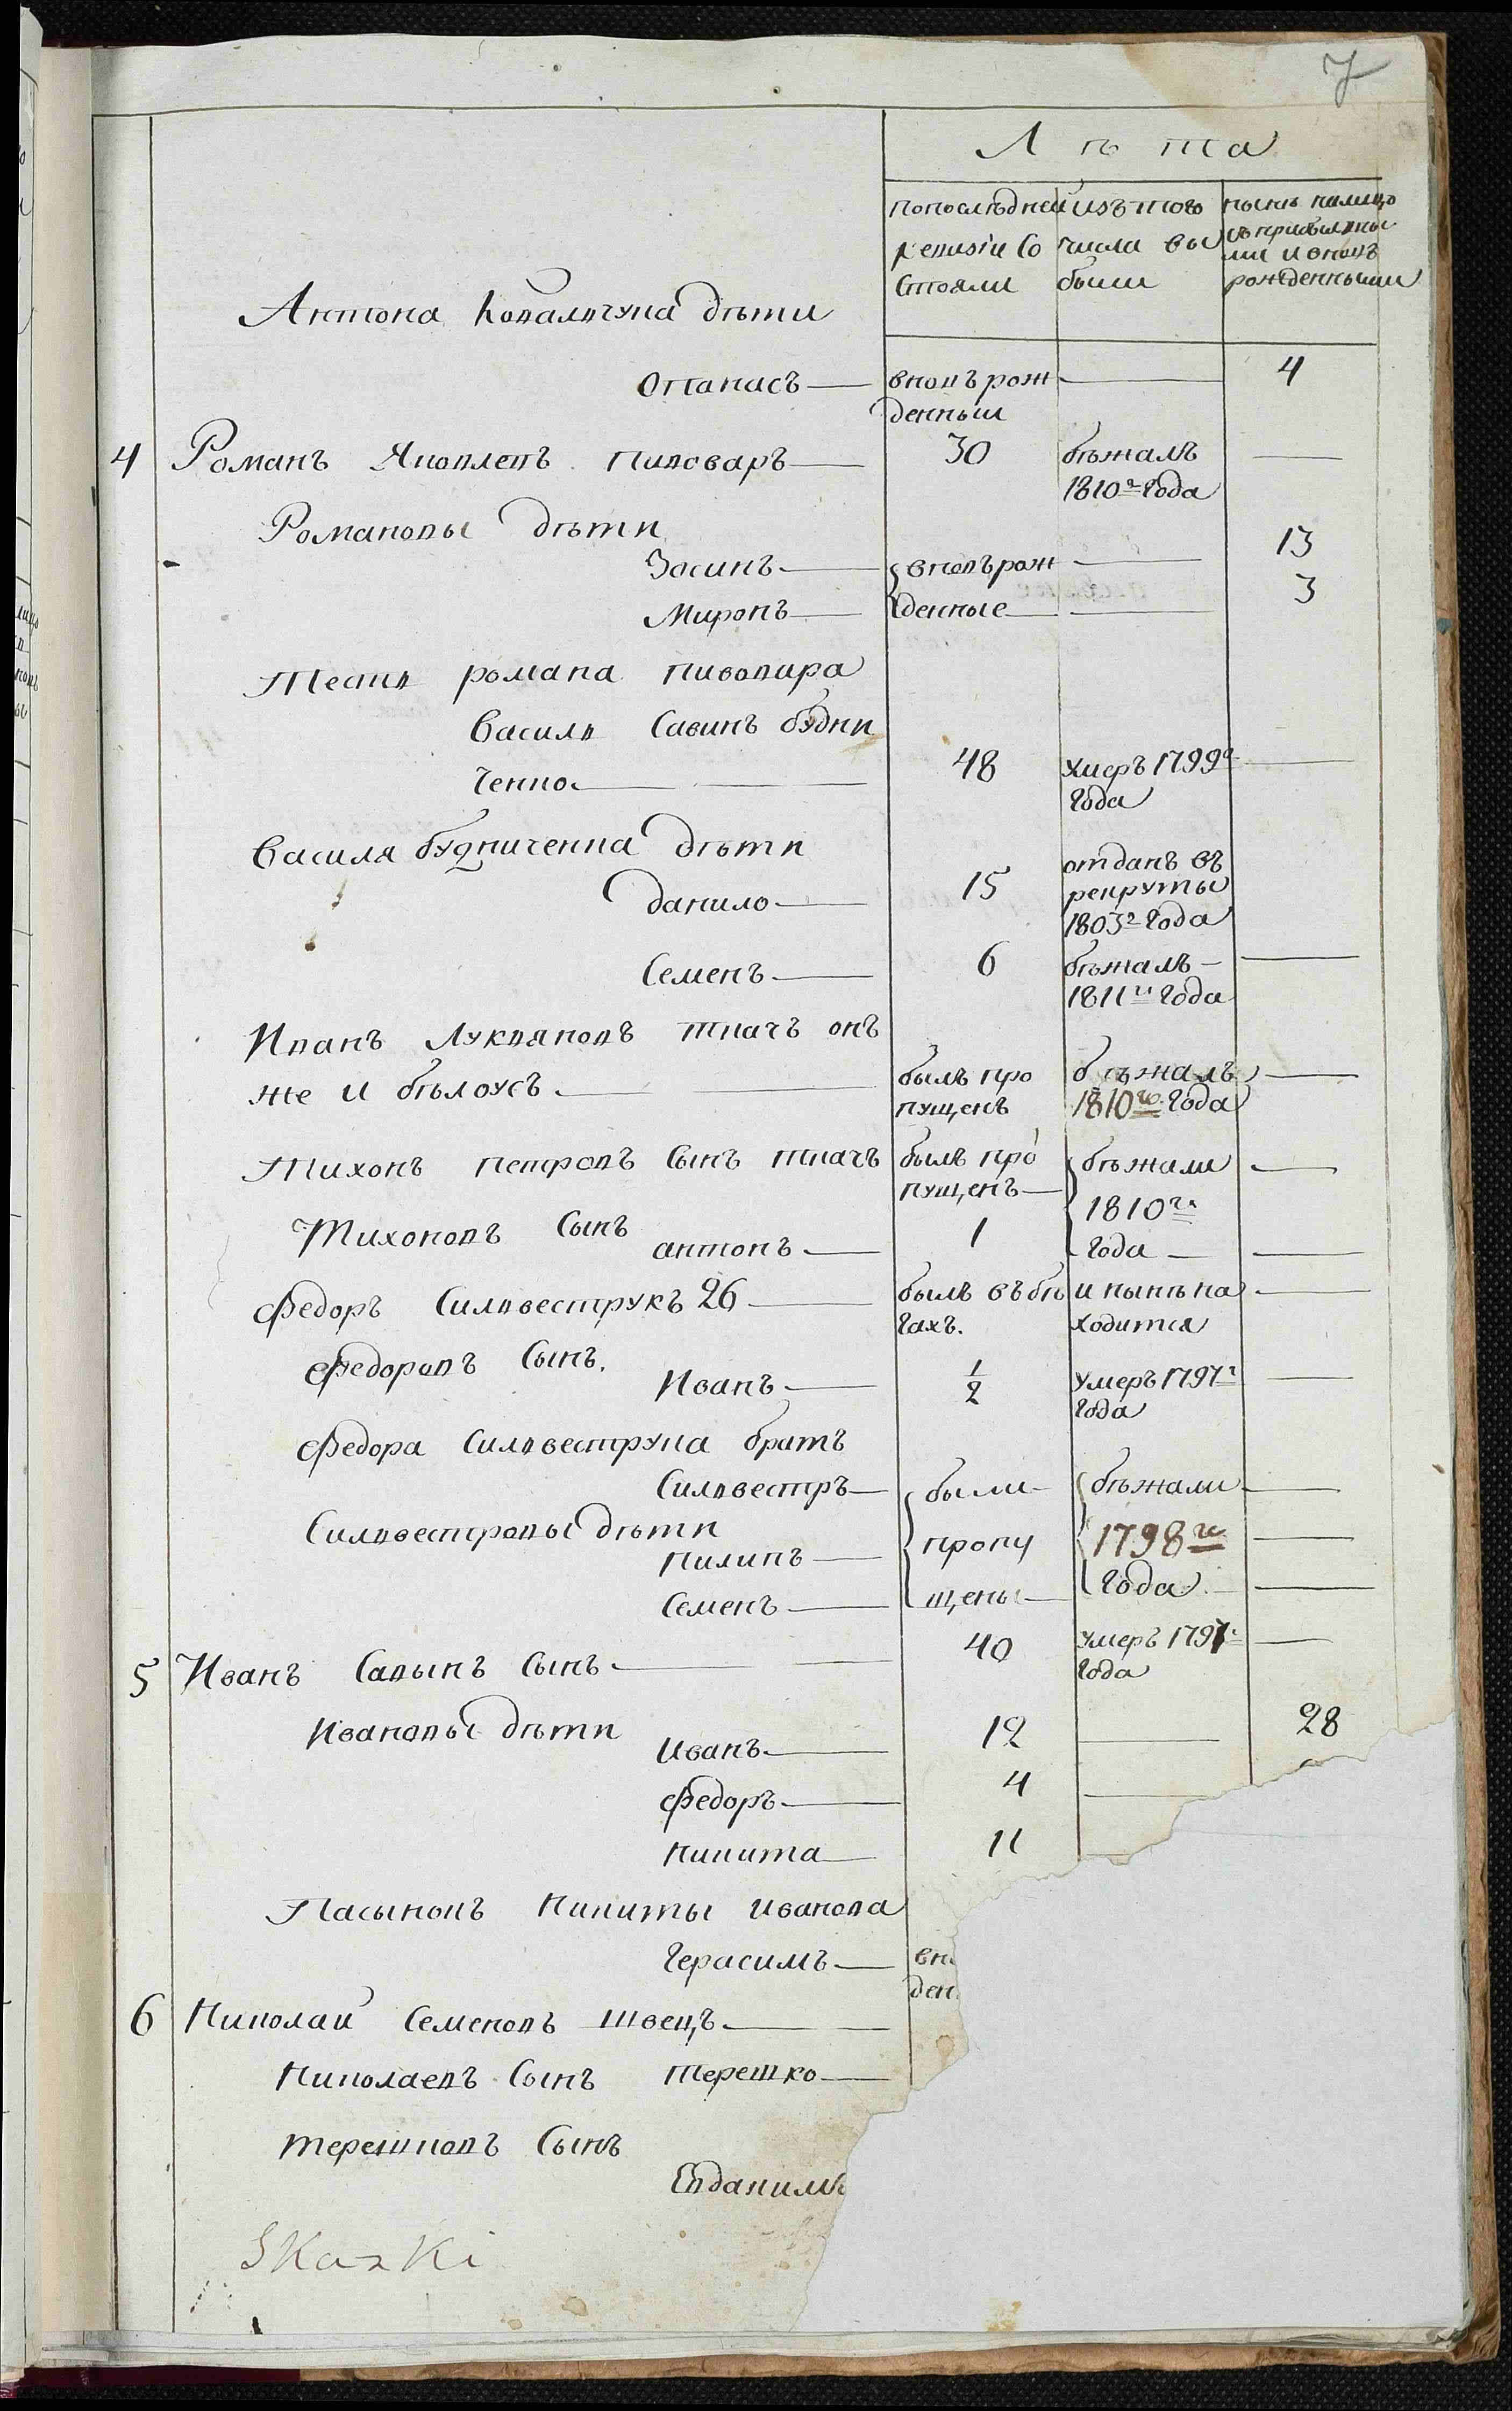 7
Лѣта
попослѣдней изъ того нынѣ налицо
ревизiи со числа вы съ прибылны
стояли были ми и вновь
рожденными
Антона Ковальчука дѣти
Опанасъ — вновъ рож — 4
денныи
4 Романъ Яковлевъ пивоваръ — 30 бѣжалъ —
1810г года
Романовы дѣти
Зосимъ — вновъ рож — 13
Миронъ — денные — 3
Тестя романа пивовара
Василя Савинъ будни
ченко — 48 умеръ 1799г —
года
Василя будниченка дѣти
данило — 15 отданъ въ
рекруты
1803г года
Семенъ — 6 бѣжалъ —
1811г года
Иванъ Лукьяновъ ткачъ онъ
же и бѣлоусъ — былъ про бѣжалъ —
пущенъ 1810го года
Тихонъ петровъ сынъ ткачъ былъ про бѣжали —
пущенъ — 1810го
Тихоновъ сынъ антонъ — 1 года —
федоръ Силвеструкъ 26 — былъ въ бѣ и нынѣ на —
гахъ. ходится
федоровъ сынъ. Иванъ — 1/2 умеръ 1797г —
года
федора силвеструка братъ
Силвестръ — были бѣжали —
Силвестровы дѣти
пилипъ — пропу 1798го —
Семенъ — щены — года —
5 Иванъ Савынъ сынъ — 40 умеръ 1797г —
года
Ивановы дѣти Иванъ — 12 — 28
федоръ — 4 —
никита — 11 —
Пасынокъ никиты иванова
герасимъ — вн
ден
6 николаи семеновъ швецъ —
николаевъ сынъ терешко —
терешковъ сынъ
Евдакимъ
Skazki